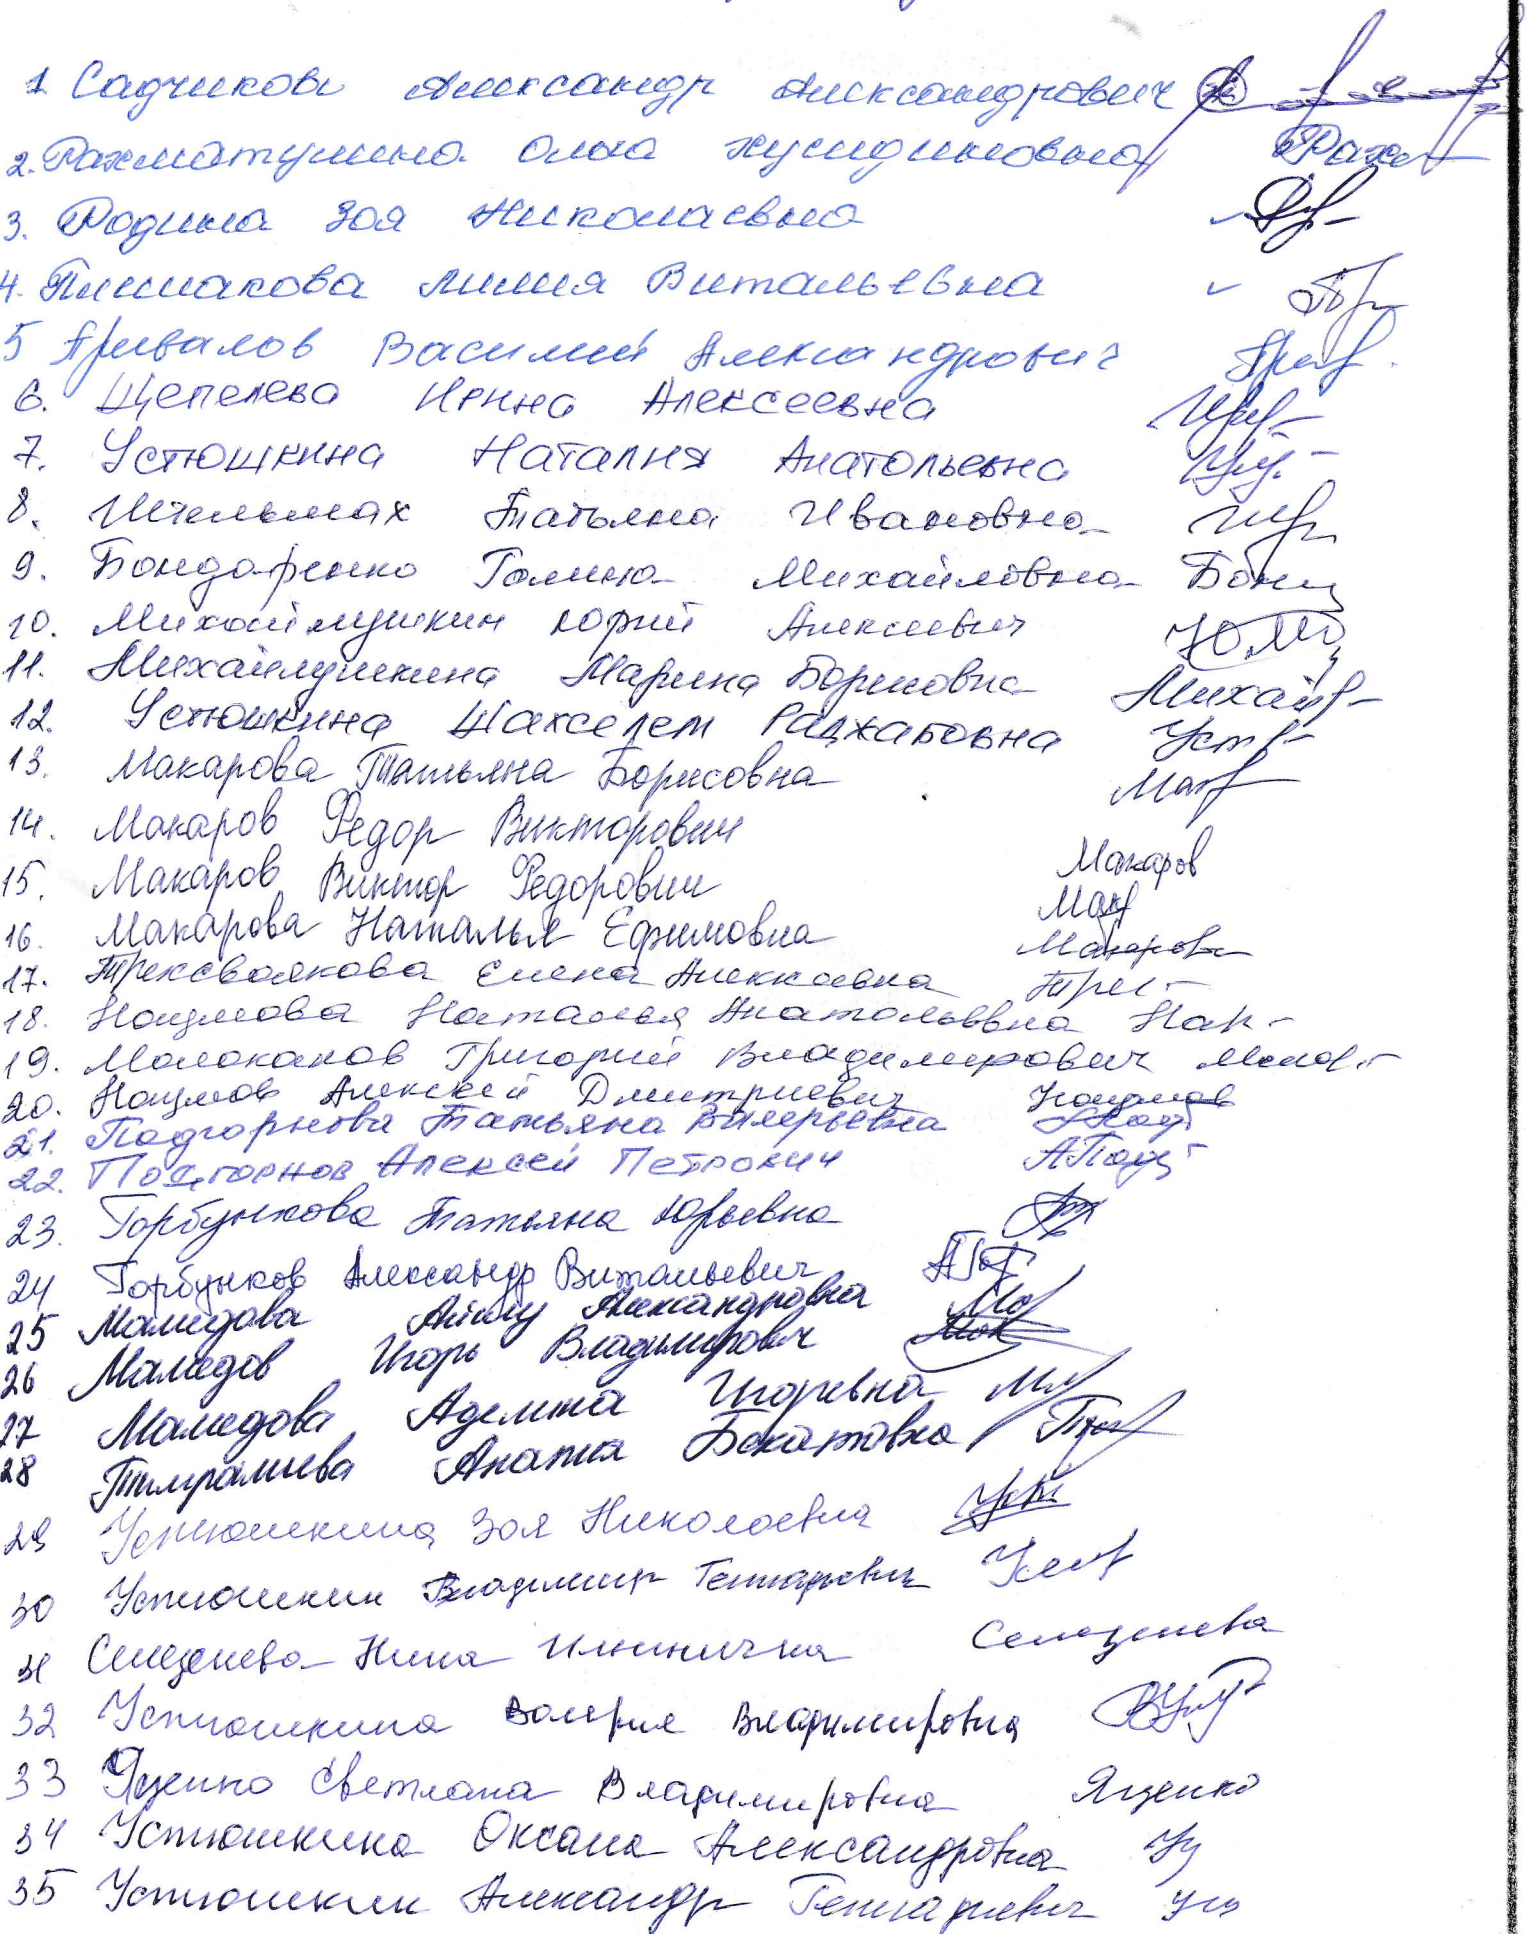 1. Садчиков Александр Александрович
2. Рахматулина Олна Рахм
3. Родина Зоя Николаевна
4. Лилия Витальевна
5 Привалов Василий Александрович Прив
6. Щепелева Ирина Алексеевна
7. Устюшкина Наталия Анатольевна
8. Штельмах Татьяна Ивановна
9. Бондаренко Галина Михайловна Бонд
10. Михайлушкин Юрий Алексеевич
11. Михайлушкина Марина Борисовна Михайл
12. Устюшкина Шахселем Раджабовна Уст
13. Макарова Татьяна Борисовна Мак
14. Макаров Федор Викторович Макаров
15. Макаров Виктор Федорович Мак
16. Макарова Наталья Ефимовна Макарова
17. Трехсвоякова Елена Алексеевна Трех
18. Наумова Наталья Анатольевна Нау
19. Молоканов Григорий Владимирович Молок
20. Наумов Алексей Дмитриевич Наумов
21. Подгорнова Татьяна Валерьевна Под
22. Подгорнов Алексей Петрович АПодг
23. Горбункова Татьяна Юрьевна
24 Горбунков Александр Витальевич
25 Мамедова Александровна
26 Мамедов Игорь Владимирович
27 Мамедова Аделина Игоревна
28 Тимралиева Бекатовна
29 Устюшкина Зоя Николаевна Уст
30 Устюшкин Владимир Геннадьевич
31 Селезнева Нина Ильинична Селезнева
32 Устюшкина Валерия Владимировна
33 Яценко Светлана Владимировна Яценко
34 Устюшкина Оксана Александровна
35 Устюшкин Александр Геннадиевич